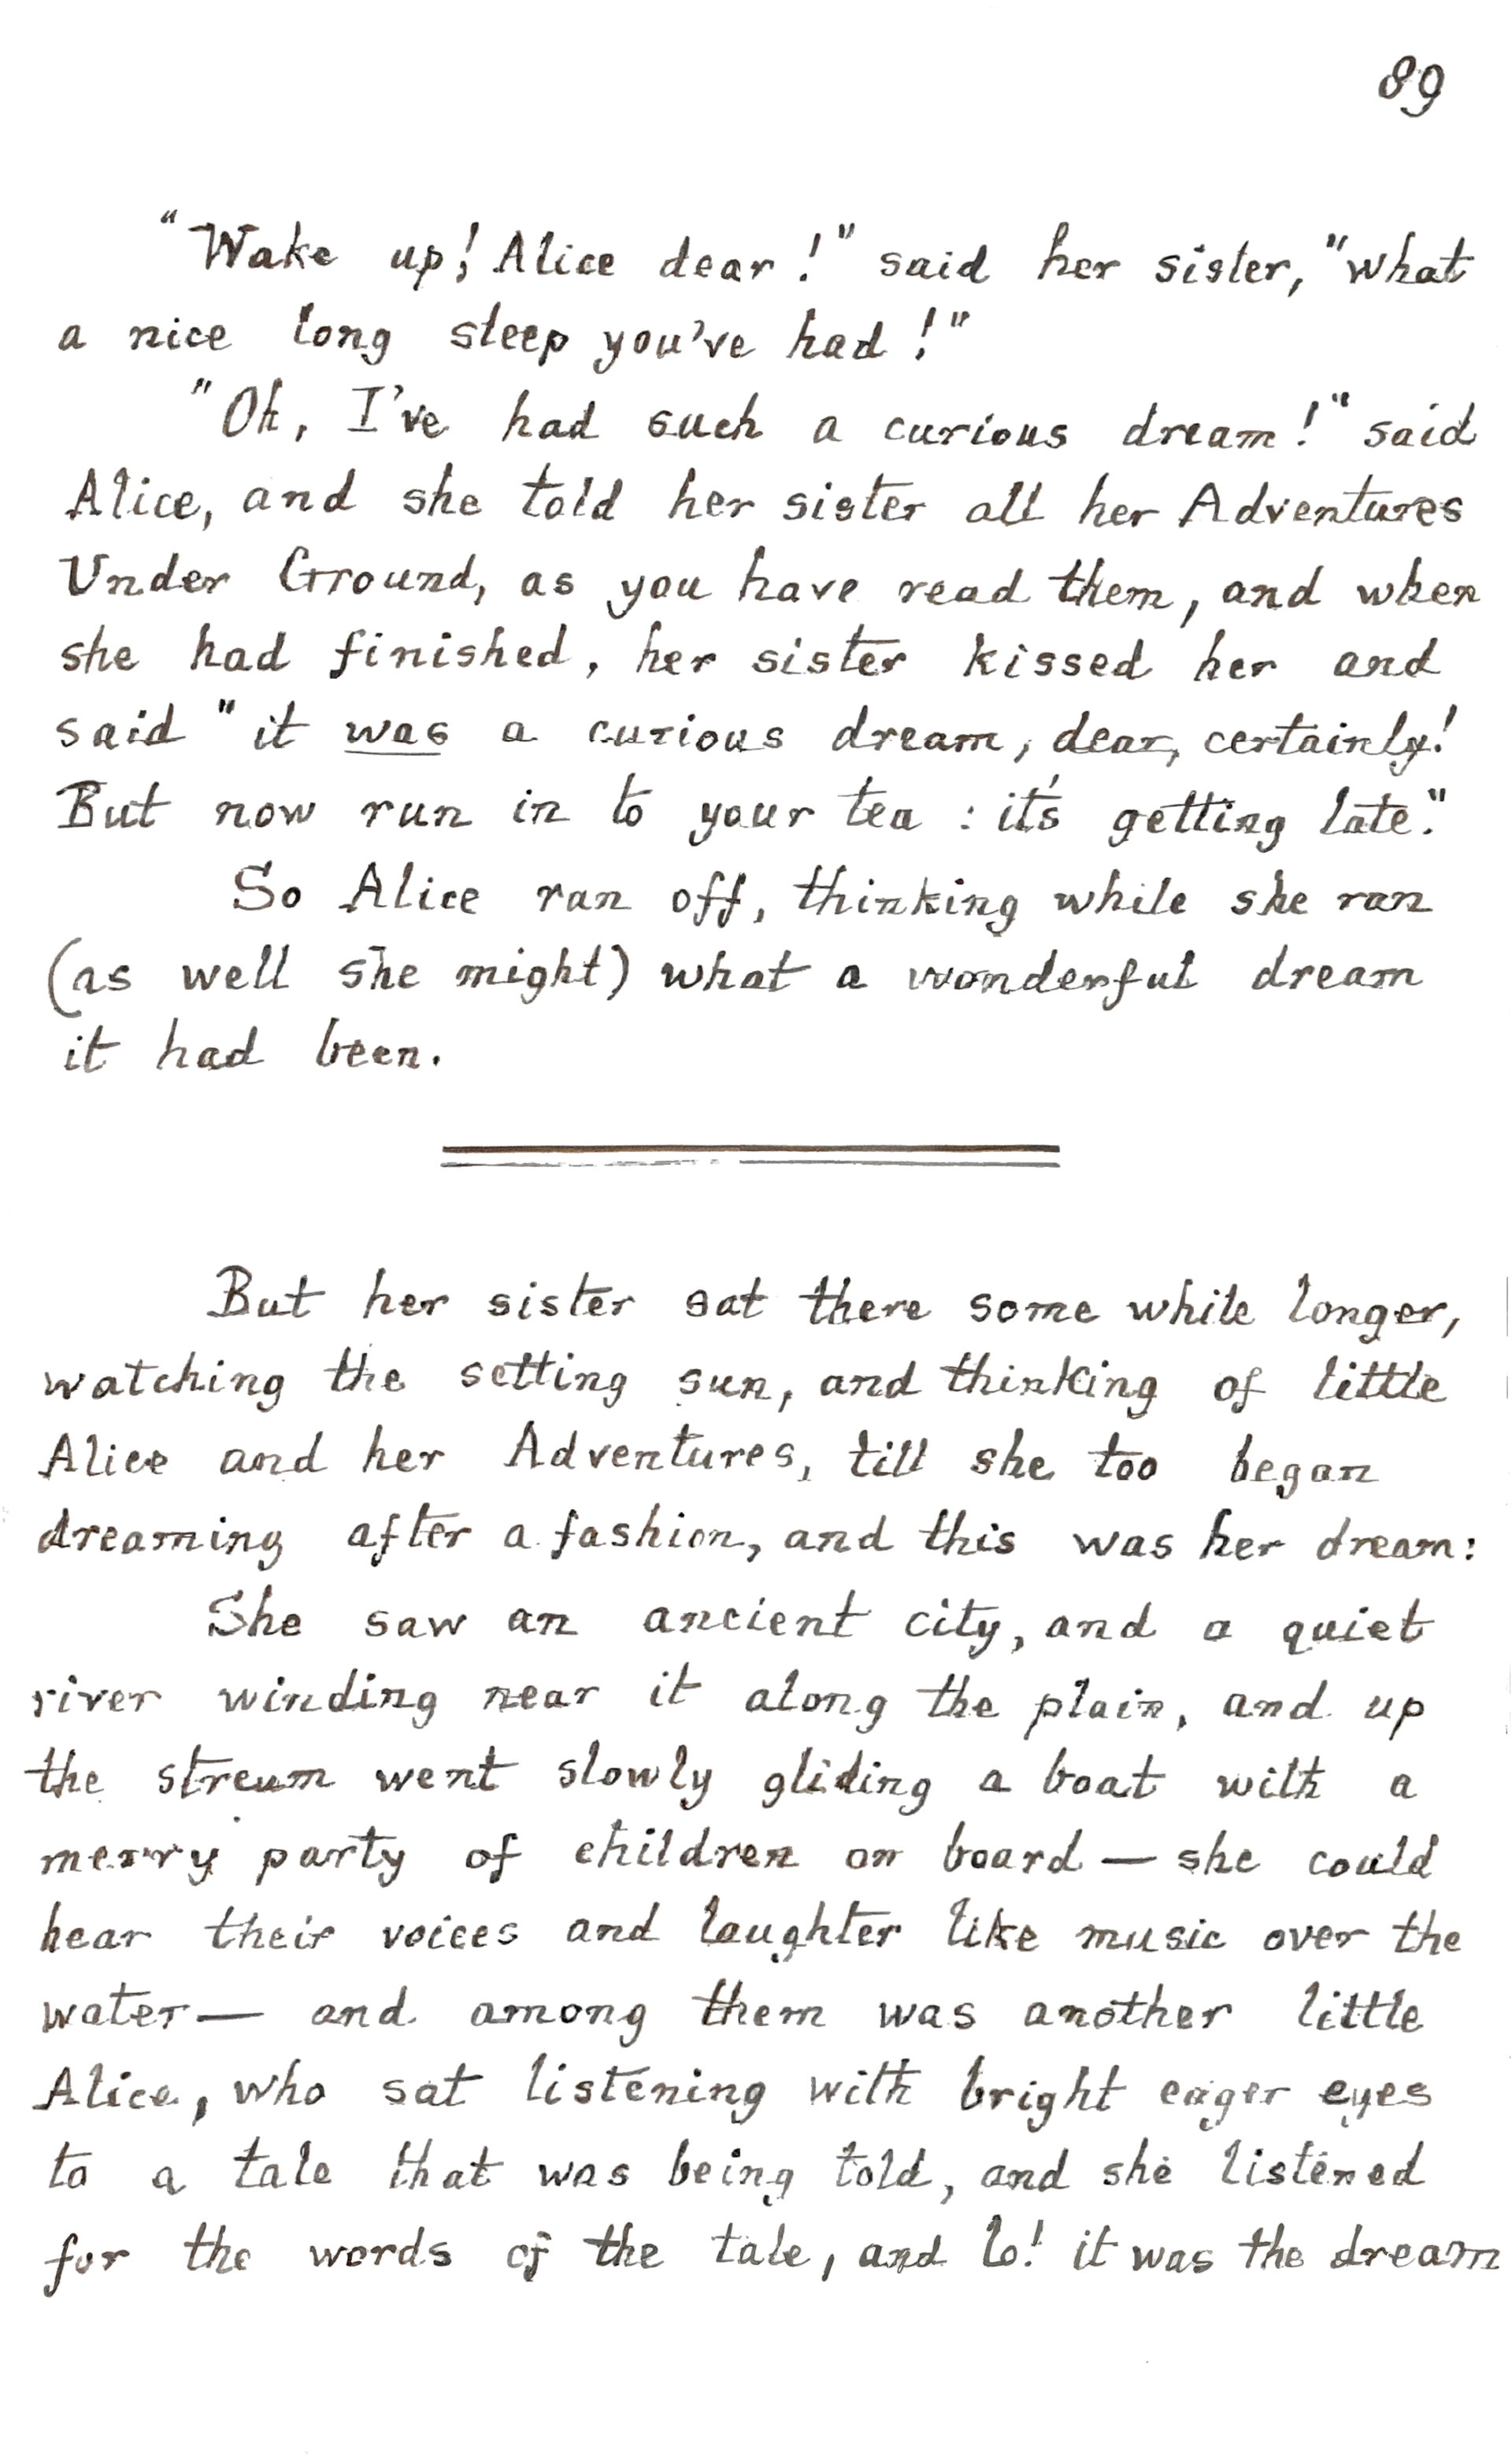 89
"Wake up! Alice dear!" said her sister, "what
a nice long sleep you've had!"
"Oh, I've had such a curious dream!" said
Alice, and she told her sister all her Adventures
Under Ground, as you have read them, and when
she had finished, her sister kissed her and
said "it was a curious dream, dear, certainly!
But now run in to your tea: it's getting late."
So Alice ran off, thinking while she ran
(as well she might) what a wonderful dream
it had been.
But her sister sat there some while longer,
watching the setting sun, and thinking of little
Alice and her Adventures, till she too began
dreaming after a fashion, and this was her dream:
She saw an ancient city, and a quiet
river winding near it along the plain, and up
the stream went slowly gliding a boat with a
merry party of children on board — she could
hear their voices and laughter like music over the
water — and among them was another little
Alice, who sat listening with bright eager eyes
to a tale that was being told, and she listened
for the words of the tale, and lo! it was the dream